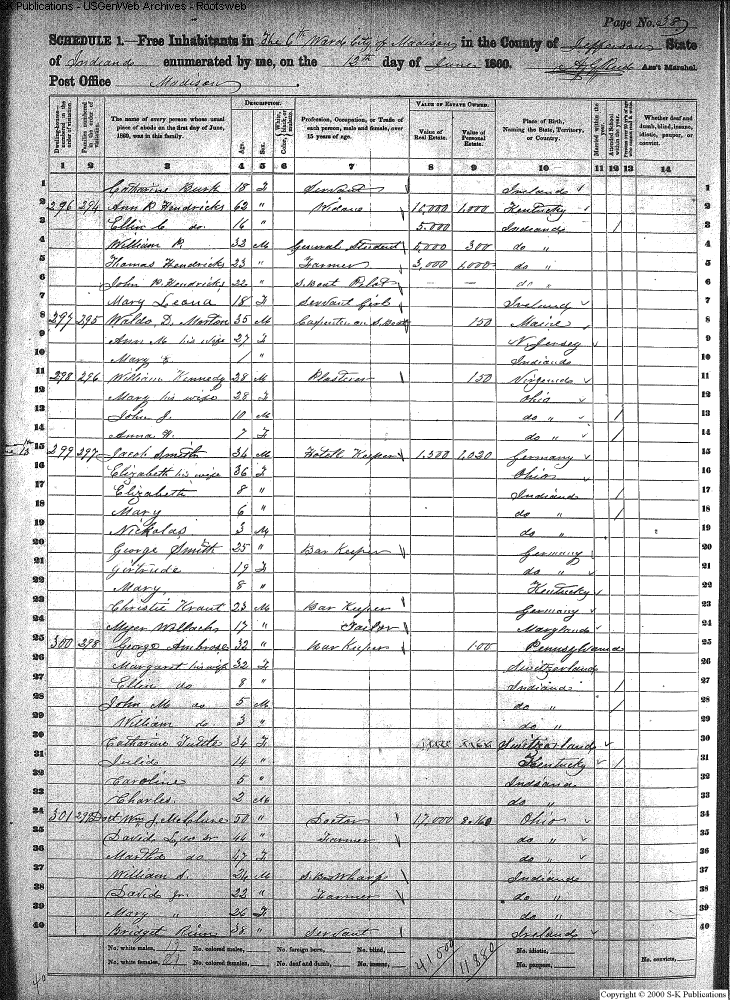 SK Publications - USGenWeb Archives - Rootsweb
Page No. 38
SCHEDULE 1.—Free Inhabitants in The 6th Ward City of Madison in the County of Jefferson State
of Indiana enumerated by me, on the 12th day of June 1860. Ass't Marshal.
Post Office Madison
Dwelling-houses numbered in the order of visitation.
Families numbered in the order of visitation.
The name of every person whose usual place of abode on the first day of June, 1860, was in this family.
DESCRIPTION.
Age.
Sex.
Color, White, black, or mulatto.
Profession, Occupation, or Trade of each person, male and female, over 15 years of age.
VALUE OF ESTATE OWNED.
Value of Real Estate.
Value of Personal Estate.
Place of Birth, Naming the State, Territory, or Country.
Married within the year.
Attended School within the year.
Whether deaf and dumb, blind, insane, idiotic, pauper, or convict.
1 2 3 4 5 6 7 8 9 10 11 12 13 14
1 Catharine Burk 18 F Servant Ireland 1
2 296 294 Ann P. Hendricks 62 " Widow 1,000 Kentucky 2
3 Ellin C do 16 " 5,000 Indiana / 3
4 William P. 32 M General Student 5,000 300 do " 4
5 Thomas Hendricks 23 " Farmer 3,000 1,000 do " 5
6 John P. Hendricks 22 " S. Boat Pilot — — do " 6
7 Mary Leona 18 F Servant Girl Ireland 7
8 297 295 Waldo D. Morton 35 M Carpenter on S. Boat 150 Maine 8
9 Ann M. his wife 27 F N. Jersey 9
10 Mary 1 " Indiana 10
11 298 296 William Kennedy 28 M Plasterer 150 Virginia 11
12 Mary his wife 28 F Ohio 12
13 John J. 10 M do " / 13
14 Anna W. 7 F do " / 14
15 299 297 Jacob Smith 34 M Hotell Keeper 1,500 1,020 Germany 15
16 Elizabeth his wife 36 F Ohio 16
17 Elizabeth 8 " Indiana / 17
18 Mary 6 " do " / 18
19 Nickolas 3 M do " 19
20 George Smith 25 " Bar Keeper Germany 20
21 Gertrude 19 F do " 21
22 Mary 8 " Kentucky 22
23 Christie Kraut 23 M Bar Keeper Germany 23
24 Myer Wallachs 17 " Tailor Maryland 24
25 300 298 George Ambrose 32 " Bar Keeper 100 Pennsylvania 25
26 Margaret his wife 32 F Switzerland 26
27 Ellin do 8 " Indiana / 27
28 John M do 5 M do " / 28
29 William do 3 " do " 29
30 Catharine Tuttle 34 F Switzerland 30
31 14 " Kentucky / 31
32 Caroline 5 " Indiana 32
33 Charles 2 M do " 33
34 301 299 Doct Wm J. McClure 50 " Doctor 17,000 8,160 Ohio 34
35 David 44 " Farmer do " 35
36 Martha do 47 F do " 36
37 William S. 24 M S. B. Wharf Indiana 37
38 David Jr. 22 " Farmer do " 38
39 Mary " 26 F do " 39
40 Bridget 38 " Servant Ireland 40
No. white males, 19 No. colored males, No. foreign born, No. blind, No. idiotic,
No. white females, 21 No. colored females, No. deaf and dumb, No. insane, No. paupers, No. convicts,
41,500 11,880
40
Copyright © 2000 S-K Publications